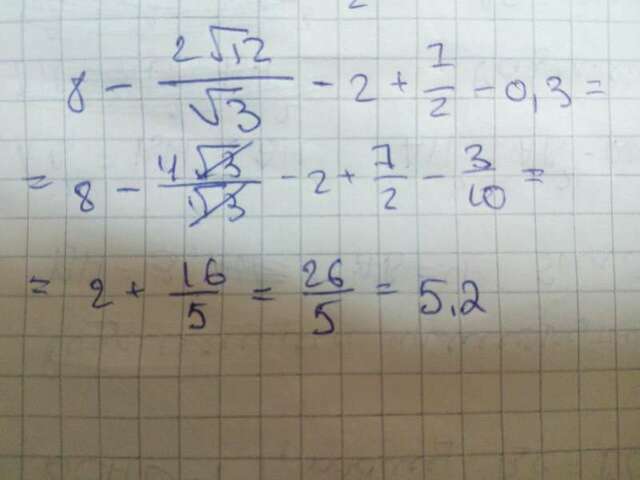 8 - 2√12/√3 - 2 + 7/2 - 0,3 =
= 8 - 4√3/√3 - 2 + 7/2 - 3/10 =
= 2 + 16/5 = 26/5 = 5,2